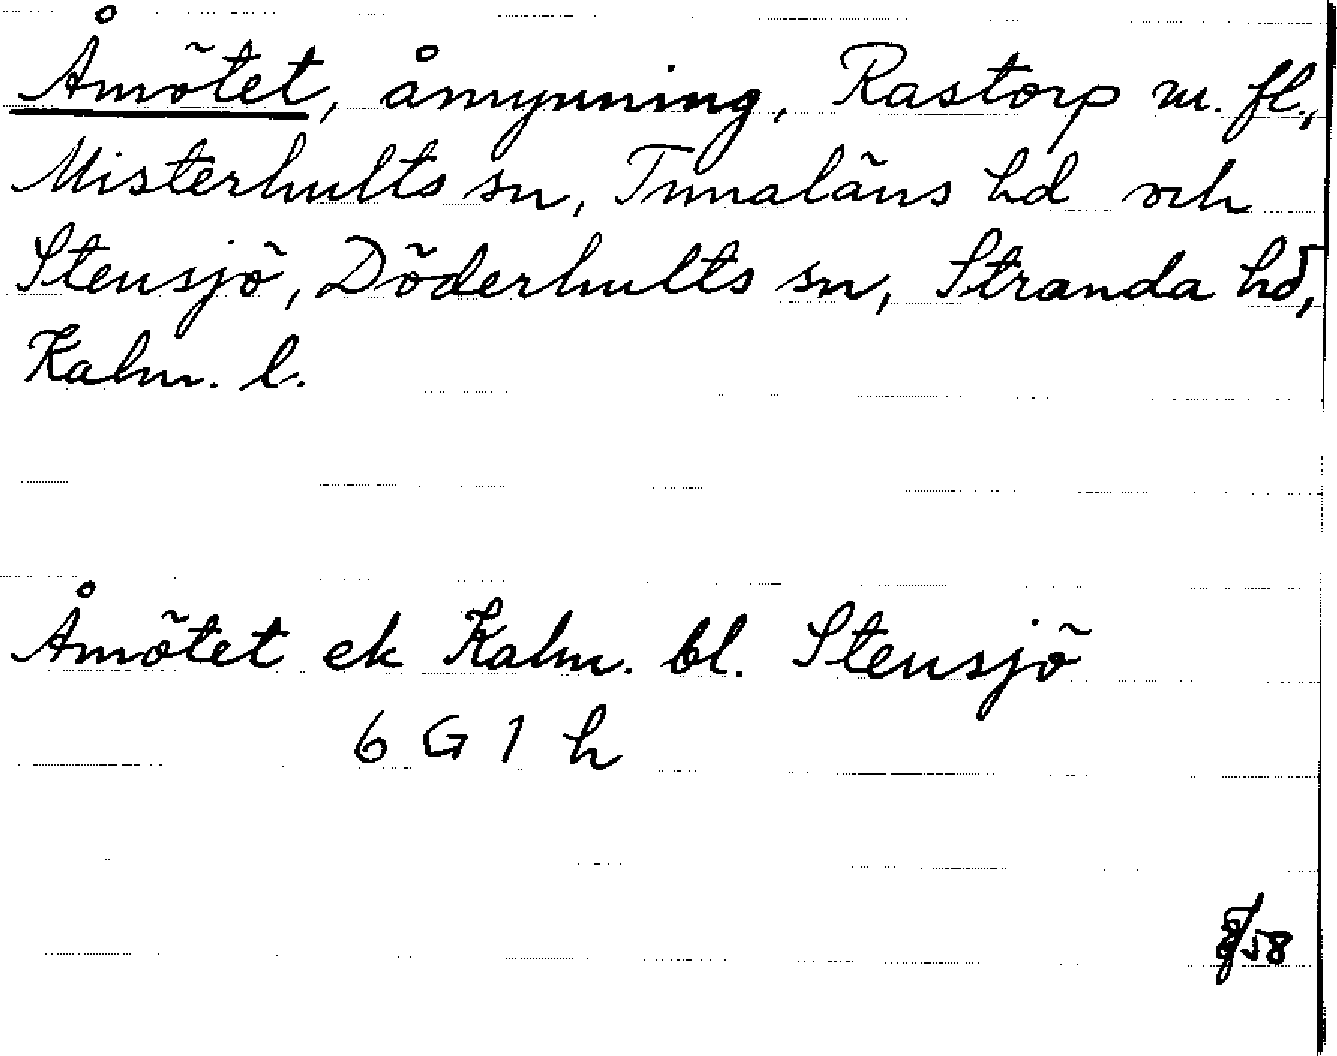 Åmötet, åmynning, Rastorp m. fl.,
Misterhults sn, Tunaläns hd och
Stensjö, Döderhults sn, Stranda hd,
Kalm. l.
Åmötet ek Kalm. bl. Stensjö
6 G 1 h
58